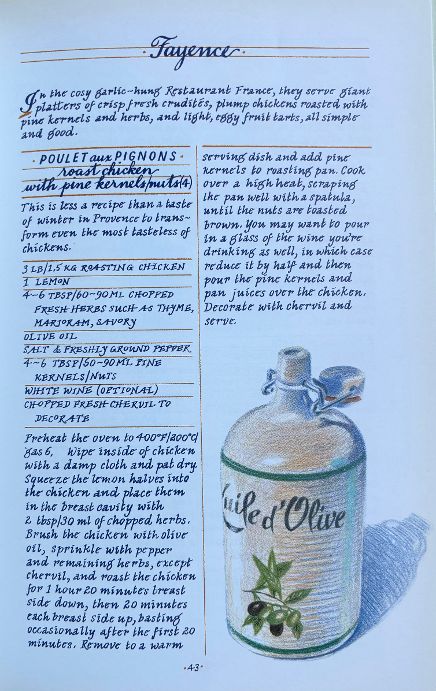 Fayence
In the cosy garlic-hung Restaurant France, they serve giant
platters of crisp fresh crudités, plump chickens roasted with
pine kernels and herbs, and light, eggy fruit tarts, all simple
and good.
·POULET aux PIGNONS·
roast chicken
with pine kernels/nuts(4)
This is less a recipe than a taste
of winter in Provence to trans-
form even the most tasteless of
chickens.
3 LB/1.5 KG ROASTING CHICKEN
1 LEMON
4-6 TBSP/60-90ML CHOPPED
FRESH HERBS SUCH AS THYME,
MARJORAM, SAVORY
OLIVE OIL
SALT & FRESHLY GROUND PEPPER
4-6 TBSP/60-90ML PINE
KERNELS/NUTS
WHITE WINE (OPTIONAL)
CHOPPED FRESH CHERVIL TO
DECORATE
Preheat the oven to 400°F/200°C/
gas 6, wipe inside of chicken
with a damp cloth and pat dry.
Squeeze the lemon halves into
the chicken and place them
in the breast cavity with
2 tbsp/30 ml of chopped herbs.
Brush the chicken with olive
oil, sprinkle with pepper
and remaining herbs, except
chervil, and roast the chicken
for 1 hour 20 minutes breast
side down, then 20 minutes
each breast side up, basting
occasionally after the first 20
minutes. Remove to a warm
serving dish and add pine
kernels to roasting pan. Cook
over a high heat, scraping
the pan well with a spatula,
until the nuts are toasted
brown. You may want to pour
in a glass of the wine you're
drinking as well, in which case
reduce it by half and then
pour the pine kernels and
pan juices over the chicken.
Decorate with chervil and
serve.
Huile d'Olive
·43·